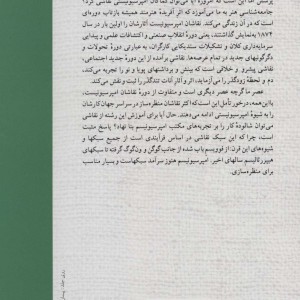 پرسش این است که امروزه آیا می‌توان کماکان امپرسیونیستی نقاشی کرد؟
جامعه‌شناسی هنر به ما می‌آموزد که اثر آفریدهٔ هنرمند همیشه بازتاب دوره‌ای
است که در آن زندگی می‌کند. نقاشان امپرسیونیست آثارشان را اولین بار در سال
۱۸۷۴ به‌نمایش گذاشتند، یعنی دورهٔ انقلاب صنعتی و اکتشافات علمی و پیدایی
سرمایه‌داری کلان و تشکیلات سندیکایی کارگران، عبارتی دورهٔ تحولات و
دگرگونیهای جدید در تمام عرصه‌ها. نقاشی برآمده از این دورهٔ جدید اجتماعی،
نقاشی پیشرو و خلاقی است که بینش و برداشتهای پویا و نو را تجربه می‌کند،
دم و لحظهٔ زودگذر را می‌آزماید، و آثار آنات گذرا را بر بوم ثبت می‌کند.
عصر ما گرچه عصر دیگری است و متفاوت از دورهٔ نقاشان امپرسیونیست،
بااین‌همه، درخور تأمل این است که اکثر نقاشان منظره‌ساز در سراسر جهان کارشان
را به شیوهٔ امپرسیونیستی ادامه می‌دهند. حال آیا برای آموزش این رشته از نقاشی
می‌توان شالودهٔ کار را بر تجربه‌های مکتب امپرسیونیسم بنا نهاد؟ پاسخ مثبت
است، چرا که این سبک نقاشی در اساس فرآیندی است از جمیع سبکها و
شیوه‌های این قرن: از فوویسم باب شده از جانب گوگن و ون‌گوگ گرفته تا سبکهای
هیپررئالیسم سالهای اخیر. امپرسیونیسم هنوز سرآمد سبکهاست و بسیار مناسب
برای منظره‌سازی.
روی جلد: